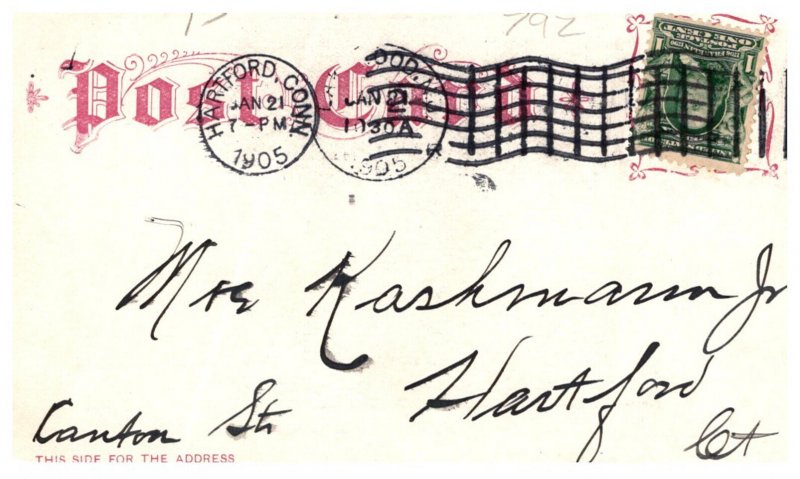 792
Post Card
HARTFORD, CONN.
JAN 21
7-PM
1905
JAN 21
1030A
1905
POSTAGE
ONE CENT
1
1
Kashmann Jr
Hartford
Canton St
Ct
THIS SIDE FOR THE ADDRESS